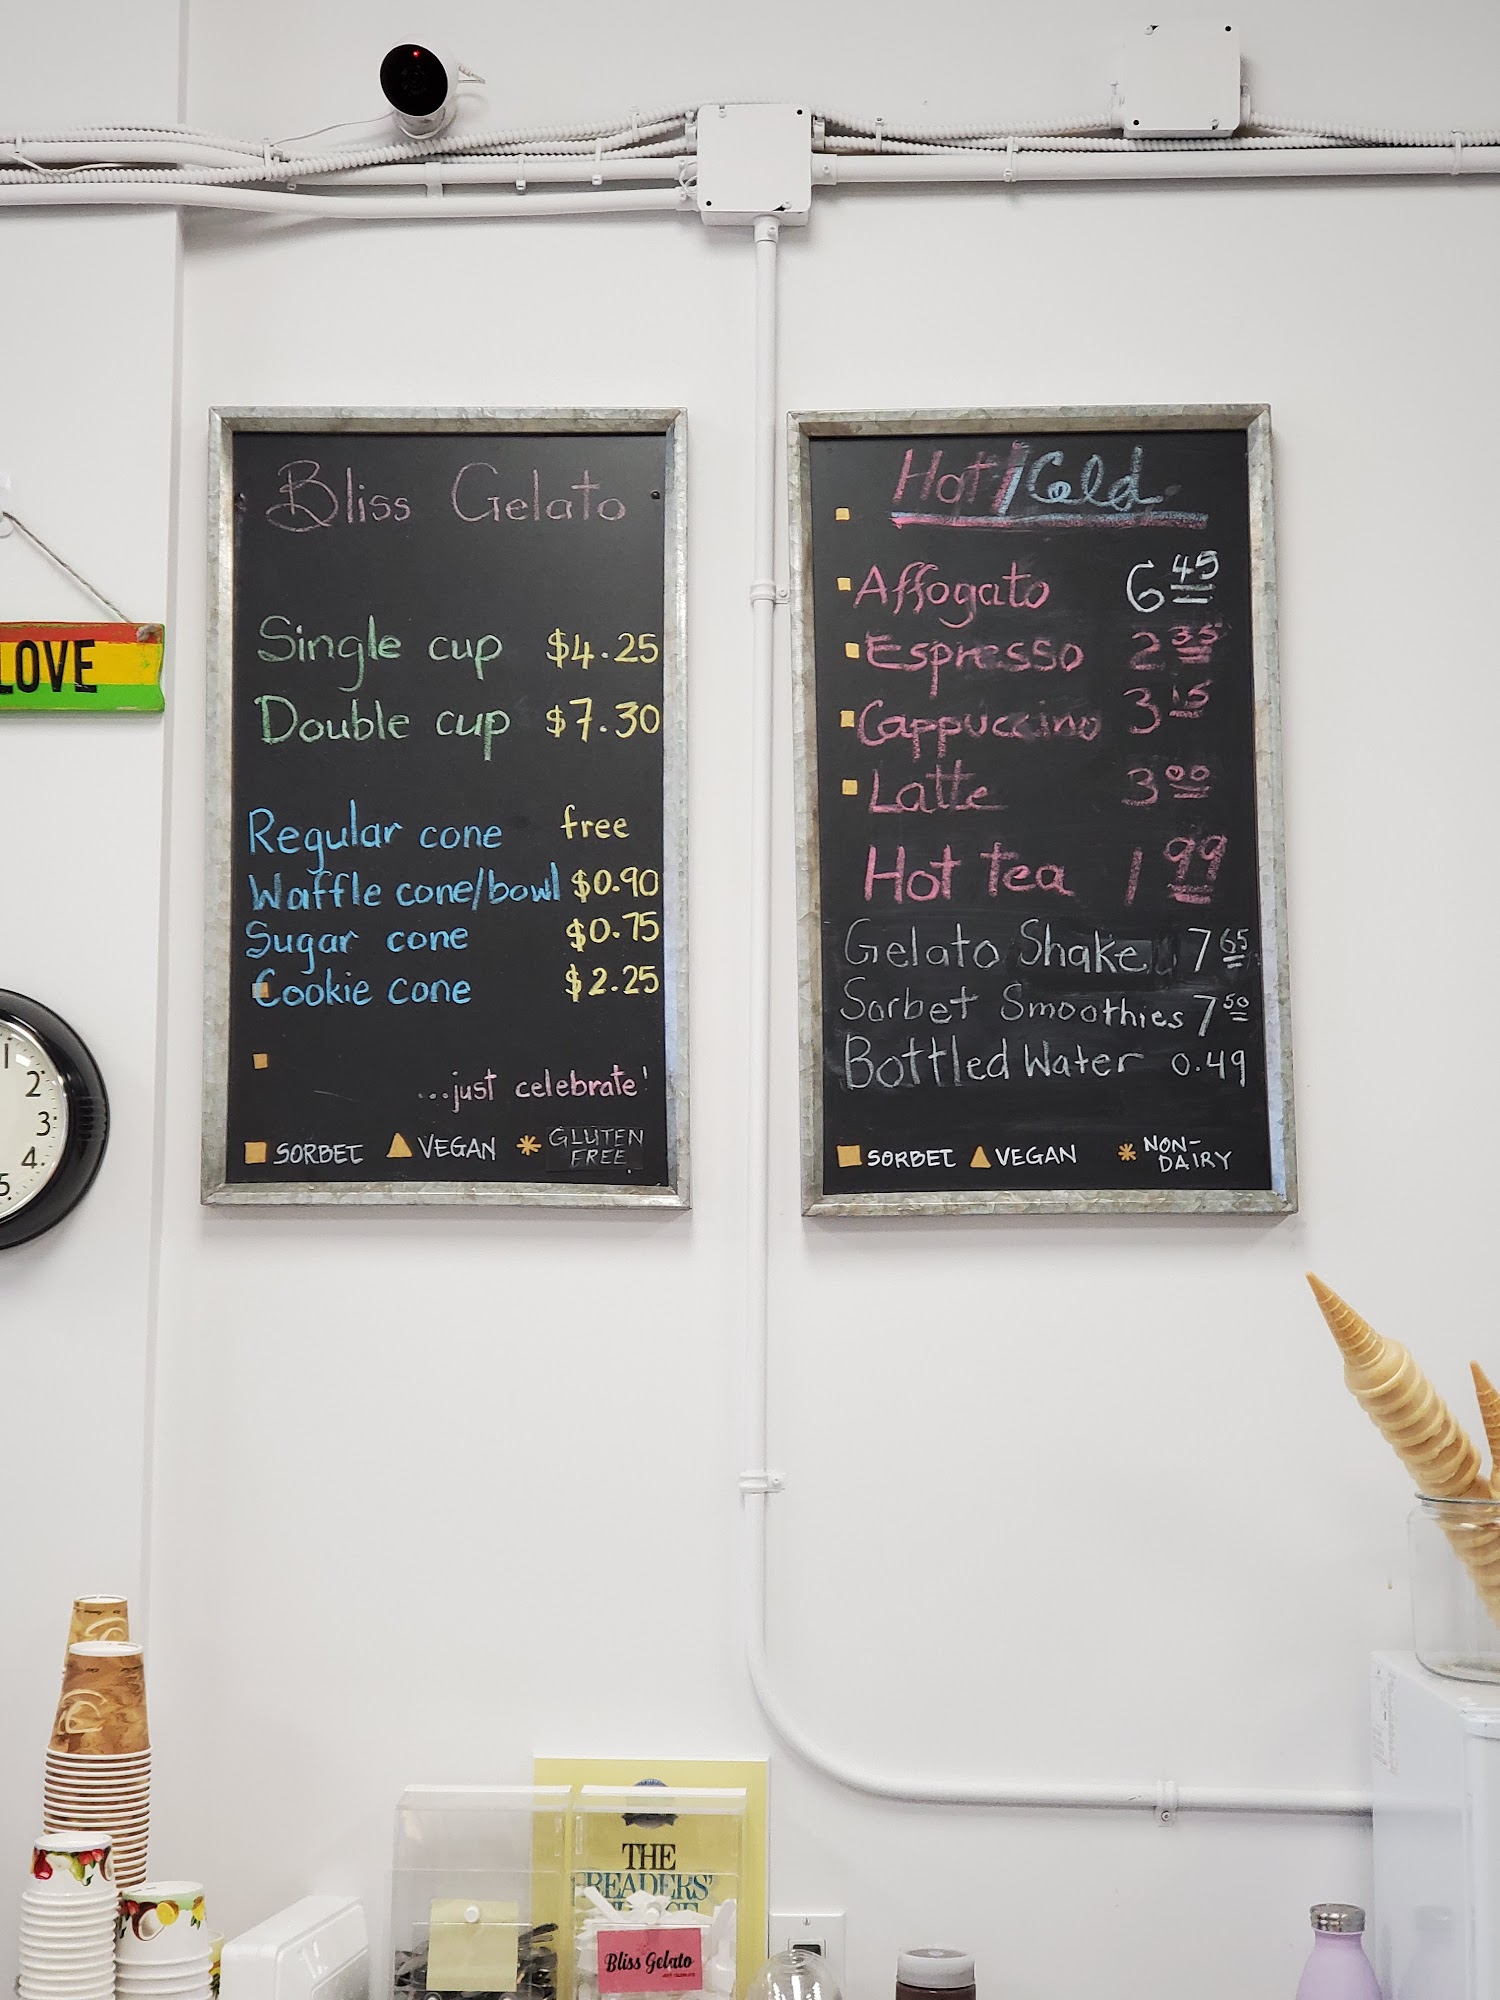 Bliss Gelato
Single cup $4.25
Double cup $7.30
Regular cone free
Waffle cone/bowl $0.90
Sugar cone $0.75
Cookie cone $2.25
...just celebrate!
SORBET VEGAN * GLUTEN FREE
Hot/Cold
Affogato 6 45
Espresso 2 35
Cappuccino 3 15
Latte 3 00
Hot Tea 1 99
Gelato Shake 7 65
Sorbet Smoothies 7 50
Bottled Water 0.49
SORBET VEGAN * NON-DAIRY
LOVE
1
2
3
4
5
THE
READERS'
Bliss Gelato